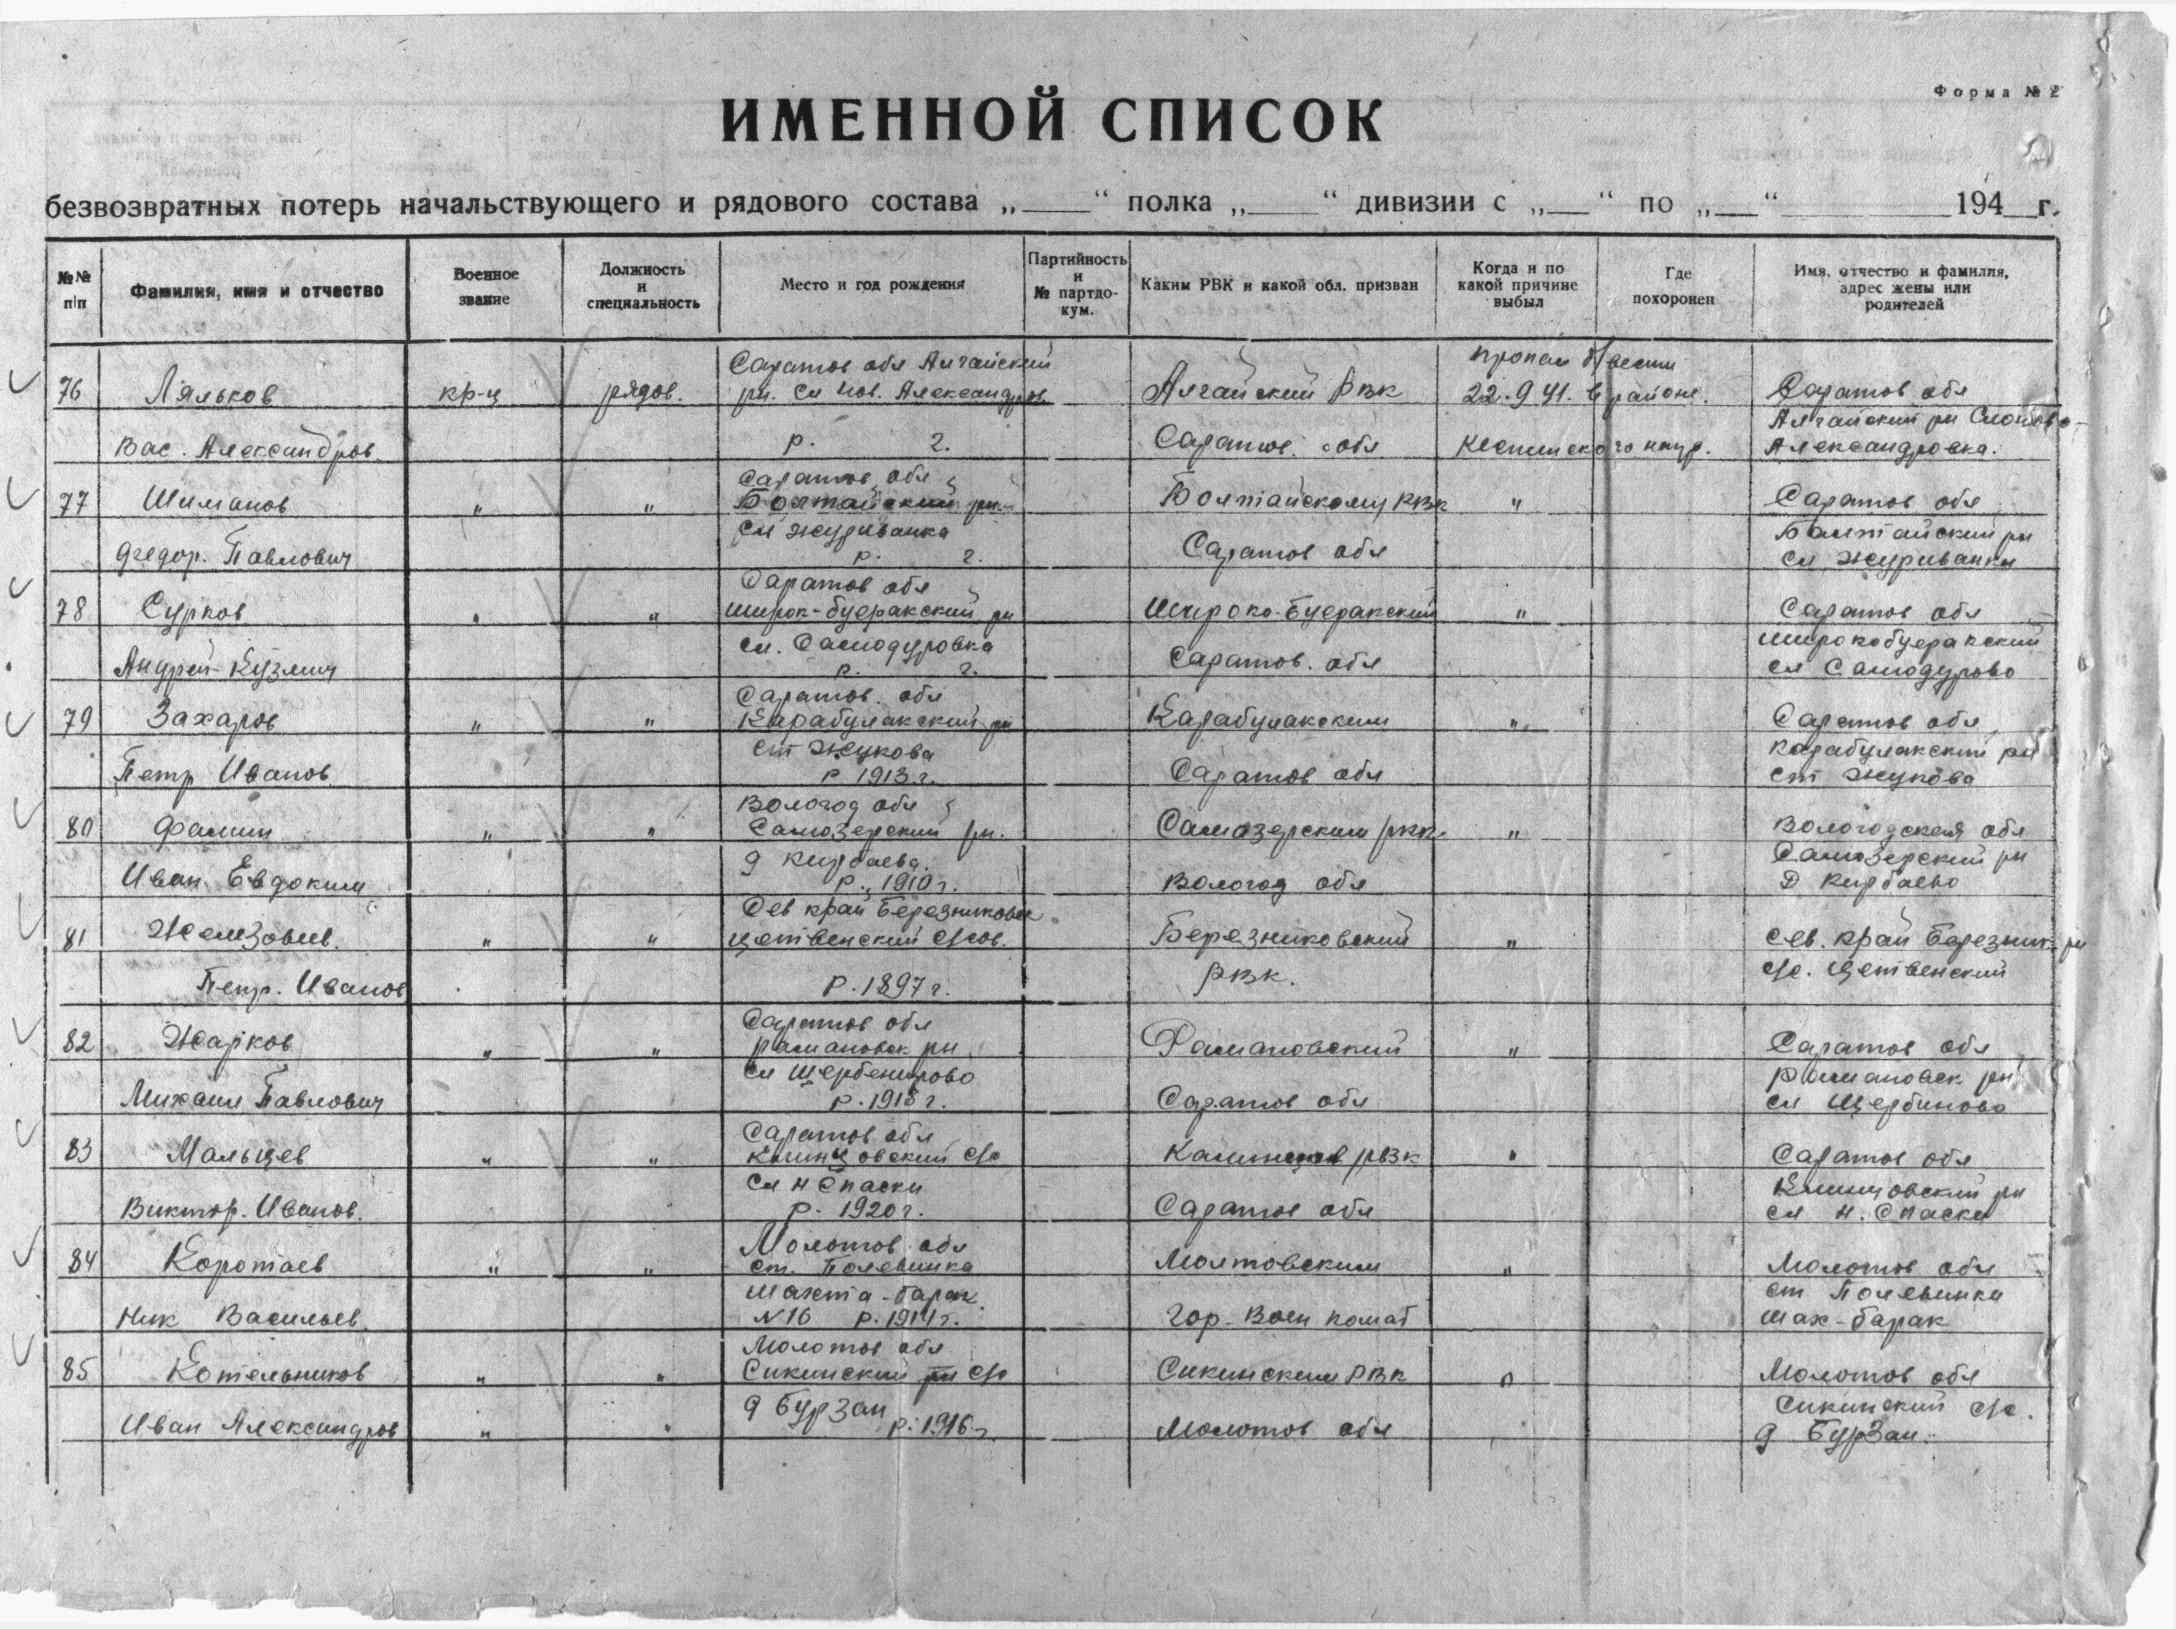 Форма № 2
ИМЕННОЙ СПИСОК
безвозвратных потерь начальствующего и рядового состава „____“ полка „____“ дивизии с „__“ по „__“ ________ 194__г.
№№ п/п
Фамилия, имя и отчество
Военное звание
Должность и специальность
Место и год рождения
Партийность и № партдокум.
Каким РВК и какой обл. призван
Когда и по какой причине выбыл
Где похоронен
Имя, отчество и фамилия, адрес жены или родителей
76 Ляльков кр-ц рядов. Саратов обл Алгайский
рн. сл Нов. Александров
Алгайский РВК
пропал б/вести
22.9.41. в районе
Саратов обл
Алгайский рн
Вас. Александров. р. г. Саратов. обл
Александровка.
77 Шиманов " " Саратов обл
Болтайский рн
сл Журиванка
р. г.
Болтайскому РВК "
Саратов обл
Федор. Павлович Саратов обл
Балтайский рн
сл Журиванки
78 Сурков " " Саратов обл
широк-буеракский рн
сл. Самодуровка
р. г.
Широко-Буеракский "
Саратов обл
Андрей Кузмич Саратов. обл
широкобуеракский
сл Самодурово
79 Захаров " " Саратов. обл
Карабулакский рн
ст Жукова
р 1913 г.
Карабулакским "
Саратов обл
Петр Иванов. Саратов обл
Карабулакский рн
ст Жукова
80 Фамин " " Вологод обл
Самозерский рн.
д Кирбаева.
р. 1910 г.
Самозерским "
Вологодская обл
Иван Евдоким Вологод обл
Самозерский рн
Д Кирбаево
81 " " Сев край Березниковск
цетвенский с/сов.
р. 1897 г.
Березниковский "
Сев. край Березник рн
с/с. Цетвенский
Петр. Иванов РВК.
82 Жарков " " Саратов обл
рамановск рн
сл
р. 1918 г.
Рамановский "
Саратов обл
Михаил Павлович Саратов обл
Рамановск рн
сл Щербиново
83 Мальцев " " Саратов обл
с/с
сл Н Спаски
р. 1920 г.
"
Саратов обл
Виктор. Иванов. Саратов обл
Клинцовский рн
сл Н. Спаски
84 Коротаев " " Молотов обл
ст. Половинка
шахта-барак
N 16 р. 1914 г.
Молтовским "
Молотов обл
Ник Васильев. гор. Воен комат
ст Половинки
шах-барак
85 Котельников " " Молотов обл
Сикинский с/с
д Бурзан
р. 1916 г.
Сикинским РВК "
Молотов обл
Иван Александров " " Молотов обл
Сикинский с/с.
д Бурзан.